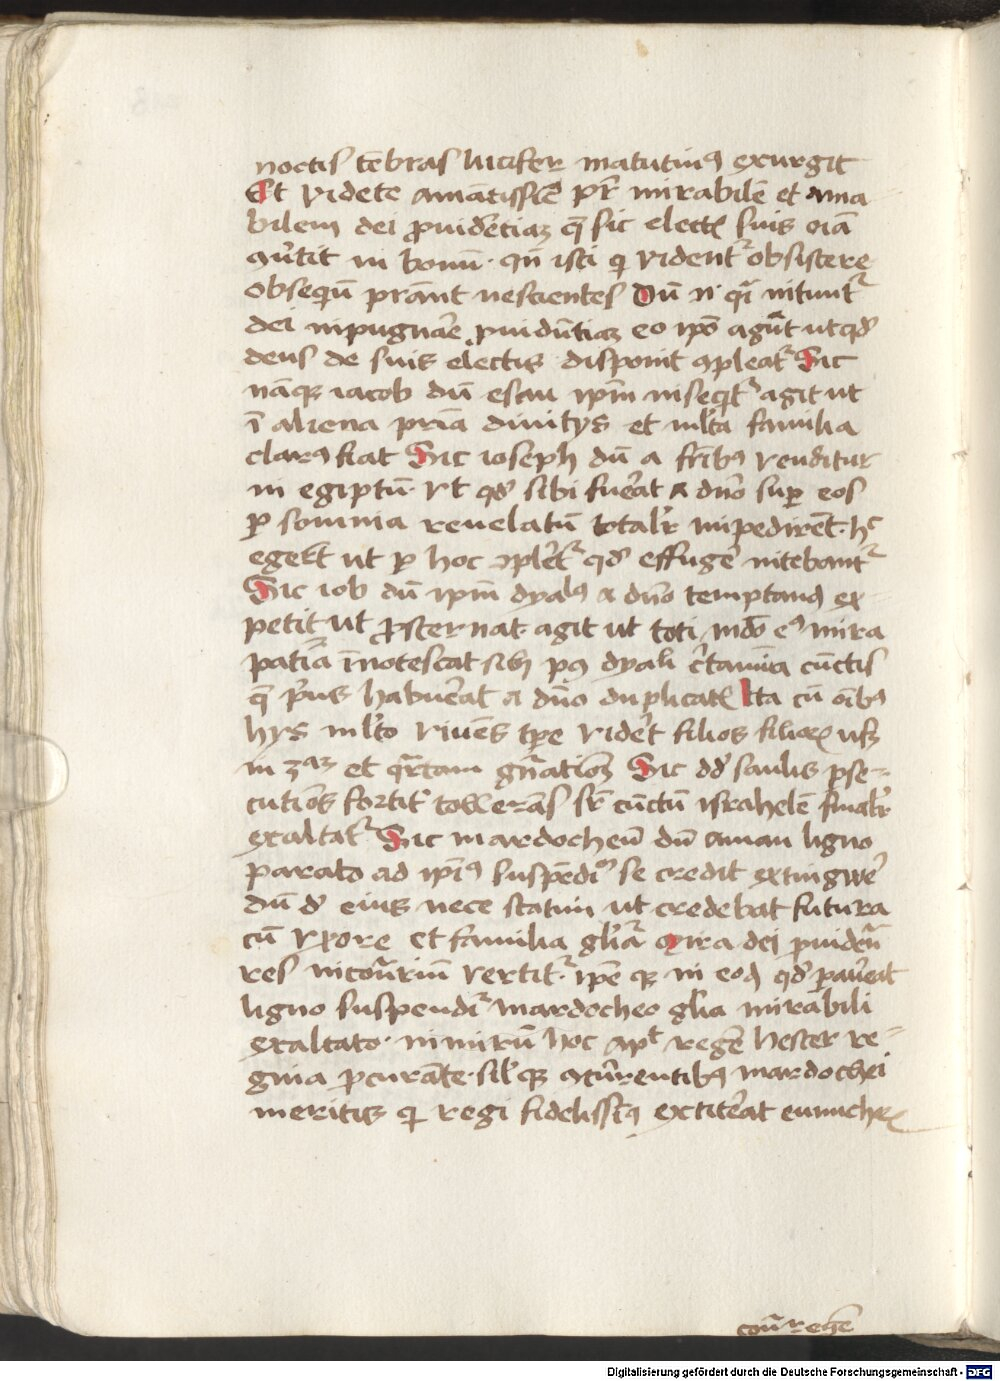 noctis tēbras lucifer matutinꝰ exurgit
Et videte amātissīē pr̄ mirabilē et ama
bilem dei ꝓuidētiaꝫ q̄ sic electꝭ suis oīa
ꝯūtit in bonū · qn̄ isti qͥ vident᷑ obsistere
obsequū prānt nescientes Dū n̄ qͣi nitunt᷑
dei inpugnāre ꝓuidētiaꝫ eo ipō agūt ut qd̓
deus de suis electis disponit ꝯpleat᷑ Sic
nāqꝫ iacob dū esau ipm̄ inseqͥt᷑ agit ut
ī aliena pr̄ia divitijs et ml̓ta familia
clarꝰ fiat Sic ioseph dū a fr̄ibꝰ venditur
in egiptū · vt qd̓ sibi fuēat a dn̄o suꝑ eos
ꝑ somnia reuelatū total̓r impedirēt · hͨ
egerūt ut ꝑ hoc ꝯplēt᷑ qd̓ effugē nitebant᷑
Sic iob dū ipm̄ dyalꝰ a dn̄o temptanꝰ ex
petit ut ꝓsternat · agit ut toti mdō eꝰ mira
patīa īnotescat sibi pꝰ dyali c̄tamīa cūctis
q̄ pͥus habuēat a dn̄o duplicatꝭ Ita cū oībꝰ
hijs ml̓to viuēs tp̄e vidēt filios filioꝝ usqꝫ
in 3ᵃᵐ et qͣrtam gn̄atiōꝫ Sic dd̓ saulis ꝑse-
cutiōēs fortit᷑ tollerās sr̄ cūctū israhelē final̓r
exaltat᷑ Sic mardocheū dū aman ligno
parato ad ipīꝰ suspēdiͫ se credit extingwē
dū d̓ eius nece statim ut credebat futura
cū vxore et familia gl̓iat᷑ Mira dei ꝓuidēͣ
res in cōͣriū vertit᷑ · ip̄e qꝫ in eod̄ qd̓ ꝑauēat
ligno suspendit᷑ mardocheo gl̓ia mirabili
exaltato · nimirū hoc apͭ regē hester re-
gina ꝓcurāte · sil̓ qꝫ ꝯcūrentibꝰ mardochei
meritis qͥ regi fidelissīꝰ extitēat eunuchꝝ